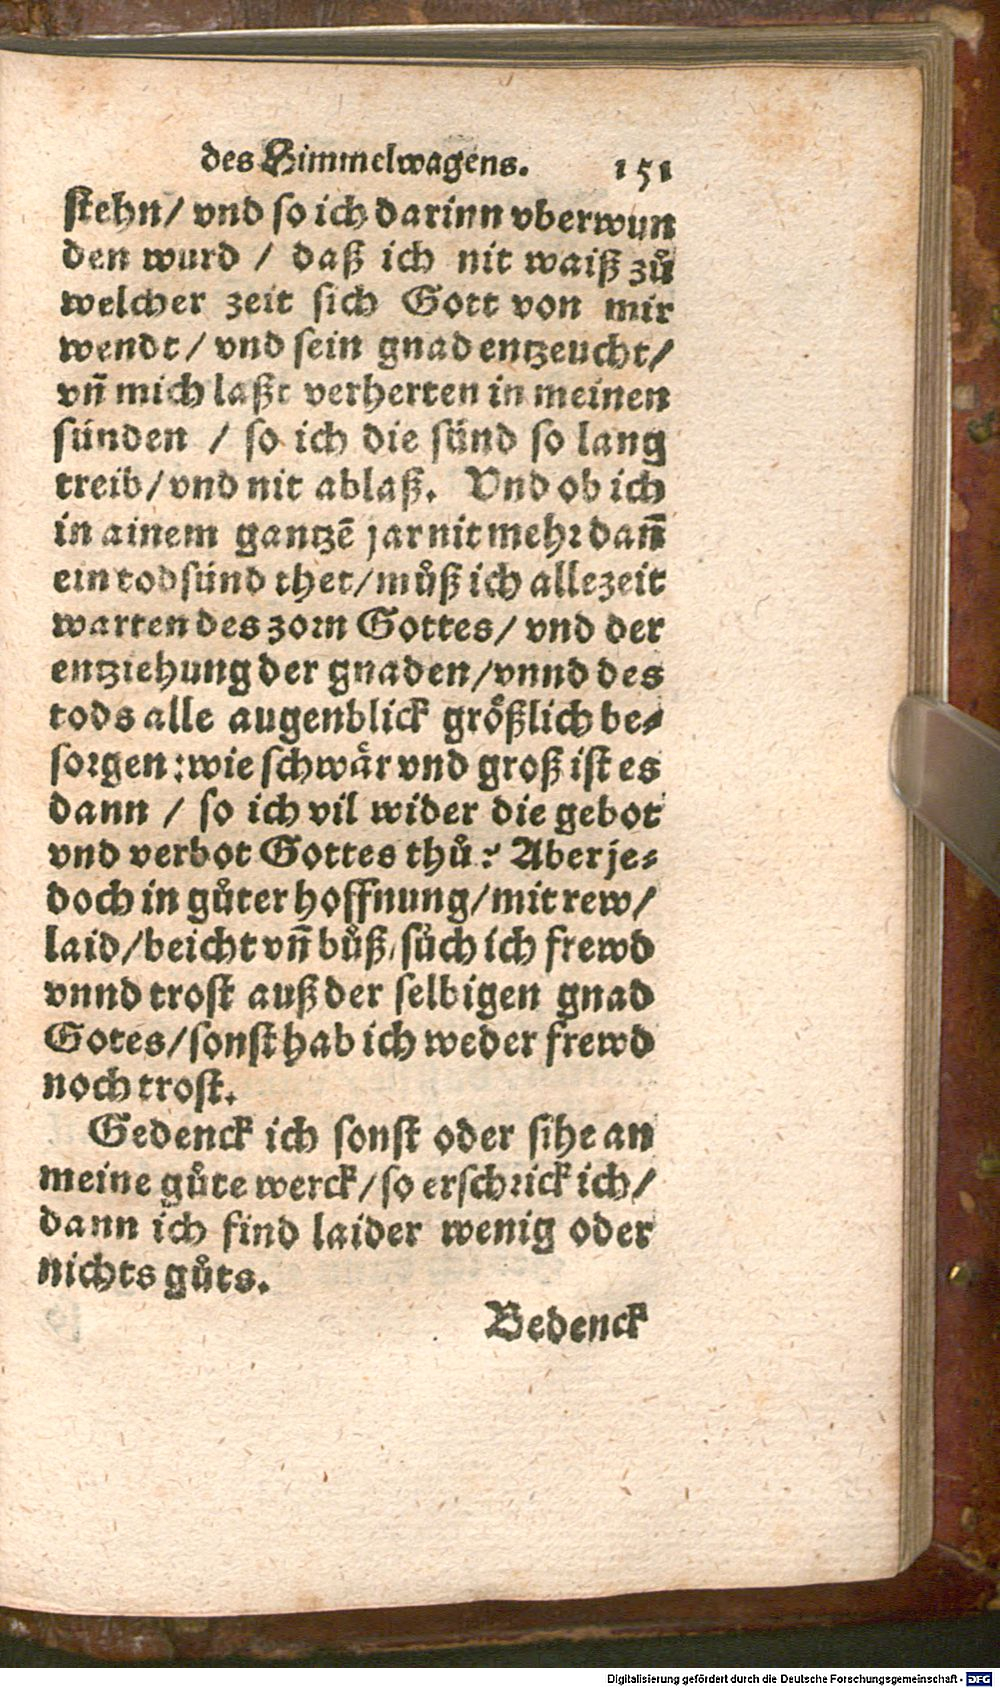 des Himmelwagens. 151
stehn/ vnd so ich darinn vberwun
den wurd / daß ich nit waiß zů
welcher zeit sich Gott von mir
wendt/ vnd sein gnad entzeucht/
vñ mich laßt verherten in meinen
sünden / so ich die sünd so lang
treib/ vnd nit ablaß. Vnd ob ich
in ainem gantzẽ jar nit mehr dañ
ein todsünd thet/ můß ich allezeit
warten des zorn Gottes/ vnd der
entziehung der gnaden/ vnnd des
tods alle augenblick größlich be⸗
sorgen: wie schwär vnd groß ist es
dann / so ich vil wider die gebot
vnd verbot Gottes thů? Aber je⸗
doch in gůter hoffnung/ mit rew/
laid/ beicht vñ bůß, sůch ich frewd
vnnd trost auß der selbigen gnad
Gotes/ sonst hab ich weder frewd
noch trost.
Gedenck ich sonst oder sihe an
meine gůte werck/ so erschrick ich/
dann ich find laider wenig oder
nichts gůts.
Bedenck
Digitalisierung gefördert durch die Deutsche Forschungsgemeinschaft - DFG